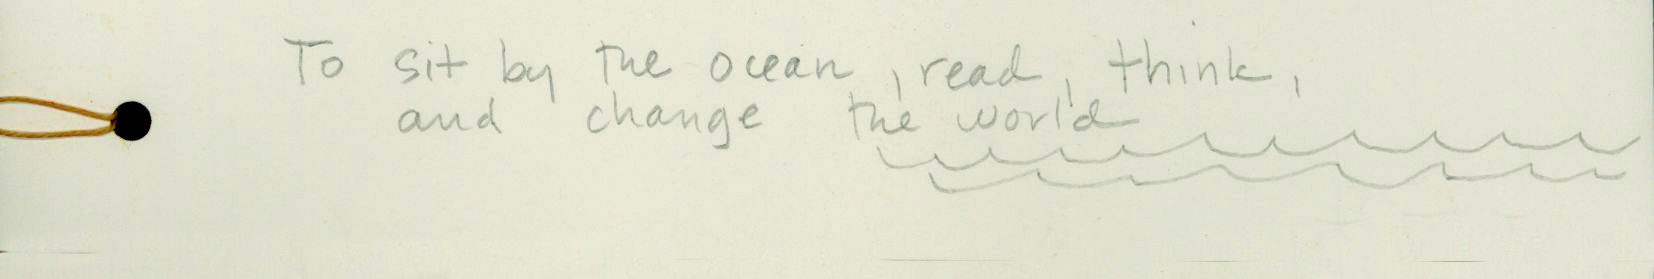 To sit by the ocean, read, think,
and change the world